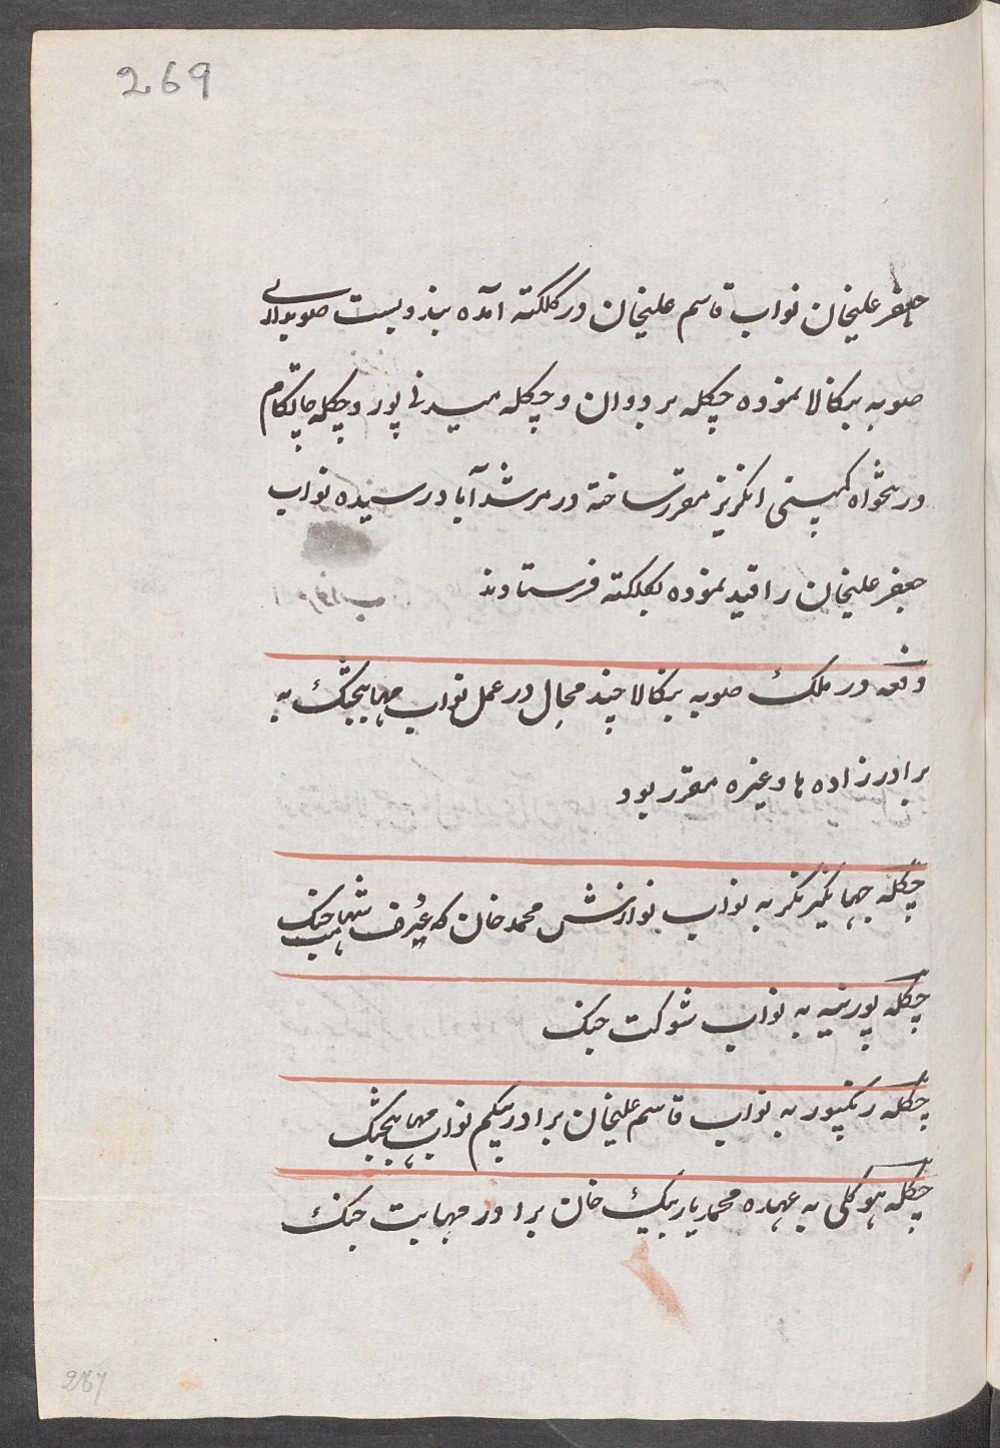 269
جعفر علیخان نواب قاسم علیخان در کلکته آمده بندوبست صوبداری
صوبه بنکالا نموده چکله بردوان و چکله میدنی پور و چکله چاتکام
در تنخواه کمپنی انکریز مقرر ساخته در مرشدآباد رسیده نواب
جعفر علیخان را قید نموده بکلکته فرستادند
دفعه در ملک صوبه بنکالا چند محال در عمل نواب مهابتجنک به
برادرزاده ها وغیره مقرر بود
چکله جهانکیرنکر به نواب نوازش محمد خان که عرف شهامت جنک
چکله پورنیه به نواب شوکت جنک
چکله رنکپور به نواب قاسم علیخان برادر بیکم نواب مهابتجنک
چکله هوکلی به عهده محمد یار بیک خان برادر مهابت جنک
267